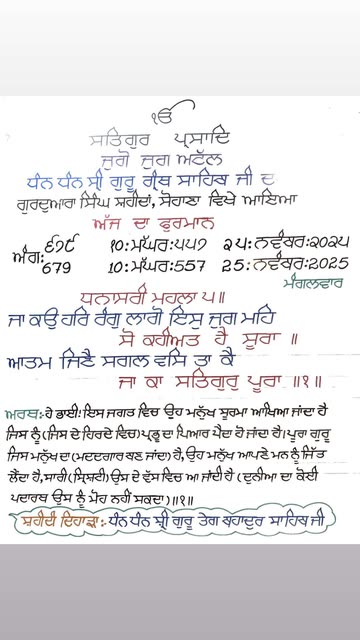 ੴ
ਸਤਿਗੁਰ ਪ੍ਰਸਾਦਿ
ਜੁਗੋ ਜੁਗ ਅਟੱਲ
ਧੰਨ ਧੰਨ ਸ੍ਰੀ ਗੁਰੂ ਗ੍ਰੰਥ ਸਾਹਿਬ ਜੀ ਦਾ
ਗੁਰਦੁਆਰਾ ਸਿੰਘ ਸ਼ਹੀਦਾਂ, ਸੋਹਾਣਾ ਵਿਖੇ ਆਇਆ
ਅੱਜ ਦਾ ਫੁਰਮਾਨ
ਅੰਗ: ੬੭੯ ੧੦:ਮੱਘਰ:੫੫੭ ੨੫:ਨਵੰਬਰ:੨੦੨੫
679 10:ਮੱਘਰ:557 25:ਨਵੰਬਰ:2025
ਮੰਗਲਵਾਰ
ਧਨਾਸਰੀ ਮਹਲਾ ੫॥
ਜਾ ਕਉ ਹਰਿ ਰੰਗੁ ਲਾਗੋ ਇਸੁ ਜੁਗ ਮਹਿ
ਸੋ ਕਹੀਅਤ ਹੈ ਸੂਰਾ ॥
ਆਤਮ ਜਿਣੈ ਸਗਲ ਵਸਿ ਤਾ ਕੈ
ਜਾ ਕਾ ਸਤਿਗੁਰੁ ਪੂਰਾ ॥੧॥
ਅਰਥ:-ਹੇ ਭਾਈ! ਇਸ ਜਗਤ ਵਿਚ ਉਹ ਮਨੁੱਖ ਸੂਰਮਾ ਆਖਿਆ ਜਾਂਦਾ ਹੈ
ਜਿਸ ਨੂੰ (ਜਿਸ ਦੇ ਹਿਰਦੇ ਵਿਚ) ਪ੍ਰਭੂ ਦਾ ਪਿਆਰ ਪੈਦਾ ਹੋ ਜਾਂਦਾ ਹੈ। ਪੂਰਾ ਗੁਰੂ
ਜਿਸ ਮਨੁੱਖ ਦਾ (ਮਦਦਗਾਰ ਬਣ ਜਾਂਦਾ) ਹੈ, ਉਹ ਮਨੁੱਖ ਆਪਣੇ ਮਨ ਨੂੰ ਜਿੱਤ
ਲੈਂਦਾ ਹੈ, ਸਾਰੀ (ਸ੍ਰਿਸ਼ਟੀ) ਉਸ ਦੇ ਵੱਸ ਵਿਚ ਆ ਜਾਂਦੀ ਹੈ (ਦੁਨੀਆ ਦਾ ਕੋਈ
ਪਦਾਰਥ ਉਸ ਨੂੰ ਮੋਹ ਨਹੀਂ ਸਕਦਾ) ॥੧॥
ਸ਼ਹੀਦੀ ਦਿਹਾੜਾ:- ਧੰਨ ਧੰਨ ਸ੍ਰੀ ਗੁਰੂ ਤੇਗ ਬਹਾਦੁਰ ਸਾਹਿਬ ਜੀ